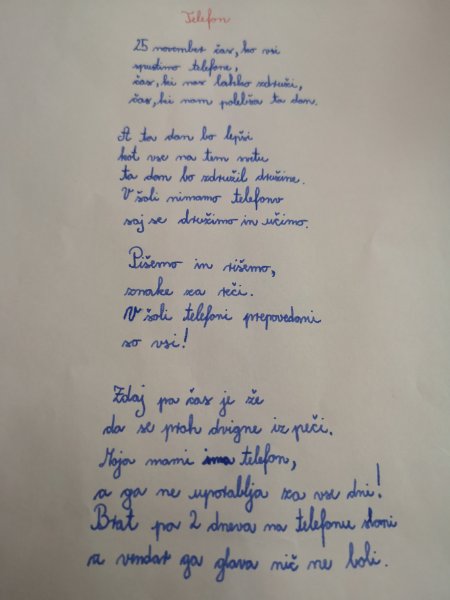 Telefon
25 november čas, ko vsi
spustimo telefone,
čas, ki nas lahko združi,
čas, ki nam polepša ta dan.
A ta dan bo lepši
kot vse na tem svetu
ta dan bo združil družine.
V šoli nimamo telefonov
saj se družimo in učimo.
Pišemo in rišemo,
znake za reči.
V šoli telefoni prepovedani
so vsi!
Zdaj pa čas je že
da se prah dvigne iz peči.
Moja mami ima telefon,
a ga ne uporablja za vse dni!
Brat pa 2 dneva na telefonu sloni
a vendar ga glava nič ne boli.